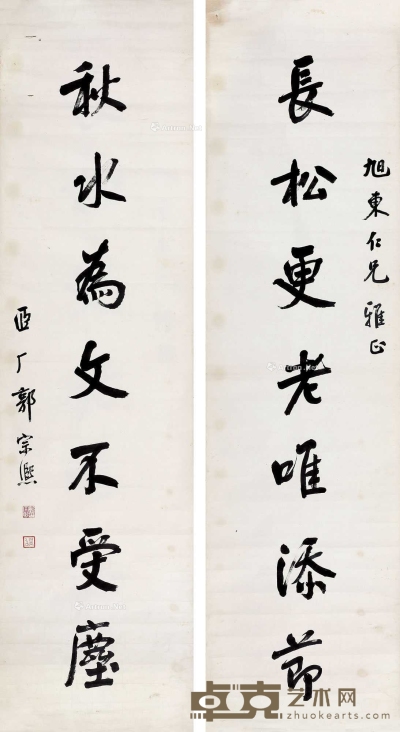 長松更老唯添節
旭東仁兄雅正
秋水為文不受塵
酉厂郭宗熙
卓克艺术网
zhuokearts.com